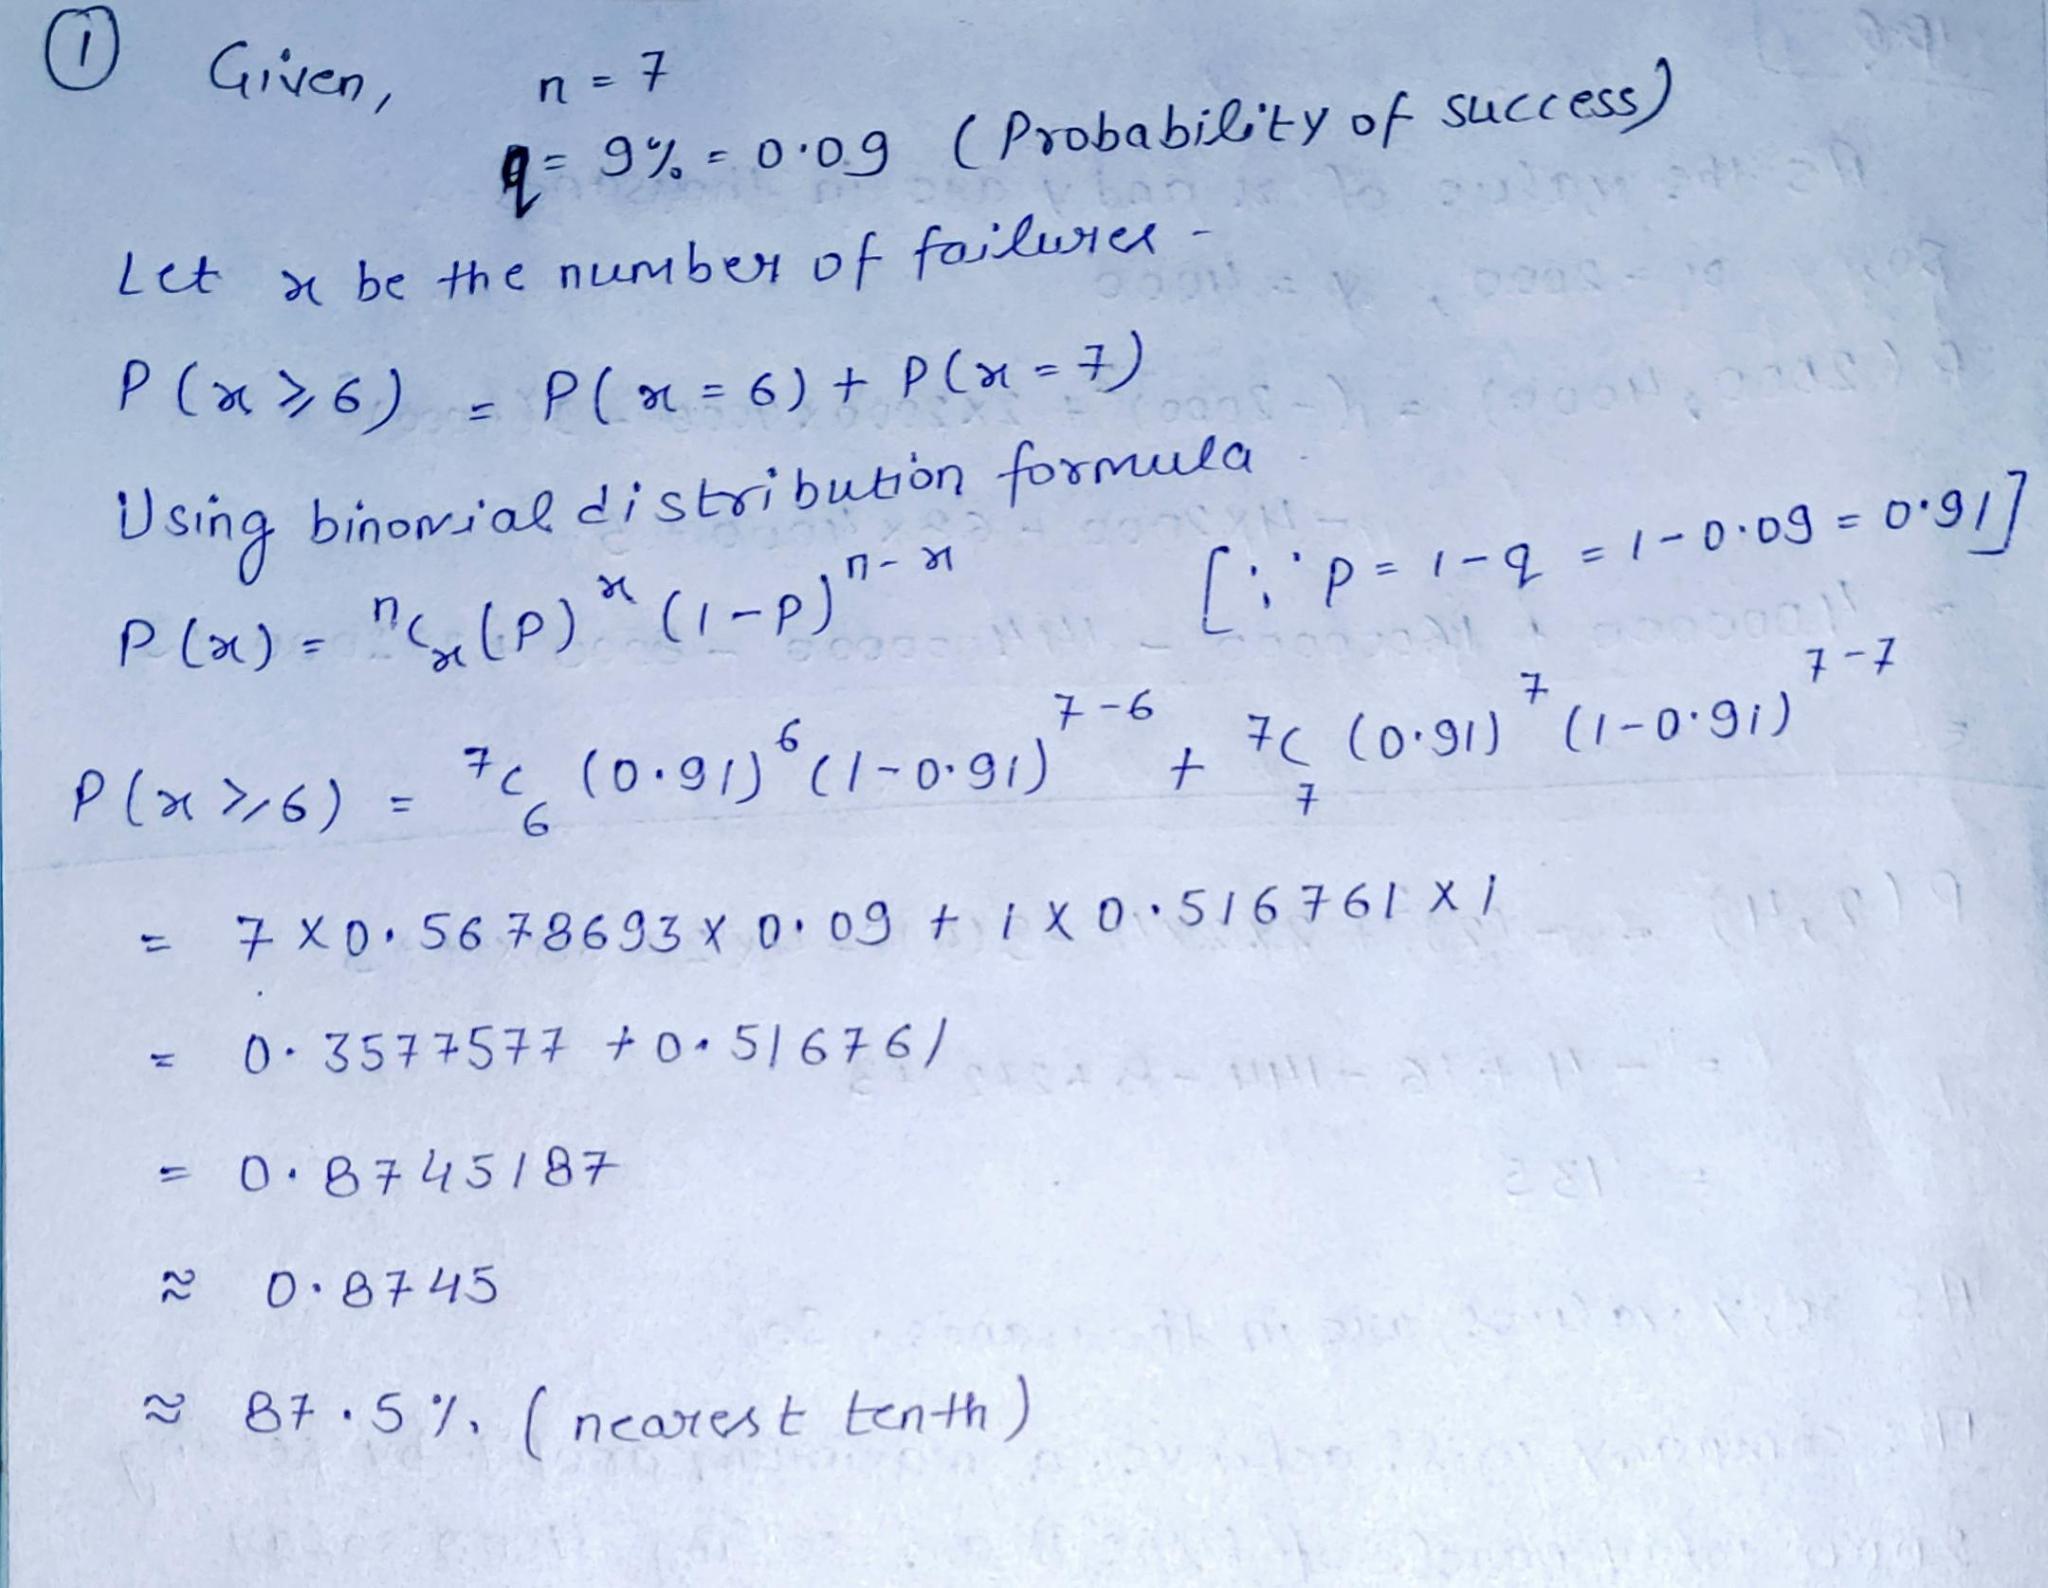 ① Given, n = 7
q = 9% = 0.09 (Probability of success)
Let x be the number of failures -
P(x ⩾ 6) = P(x = 6) + P(x = 7)
Using binomial distribution formula
P(x) = ⁿCₓ (P)ˣ (1-P)ⁿ⁻ˣ [∵ p = 1-q = 1-0.09 = 0.91]
P(x ⩾ 6) = ⁷C₆ (0.91)⁶ (1-0.91)⁷⁻⁶ + ⁷C₇ (0.91)⁷ (1-0.91)⁷⁻⁷
= 7 X 0.5678693 X 0.09 + 1 X 0.516761 X 1
= 0.3577577 + 0.516761
= 0.8745187
≈ 0.8745
≈ 87.5% (nearest tenth)